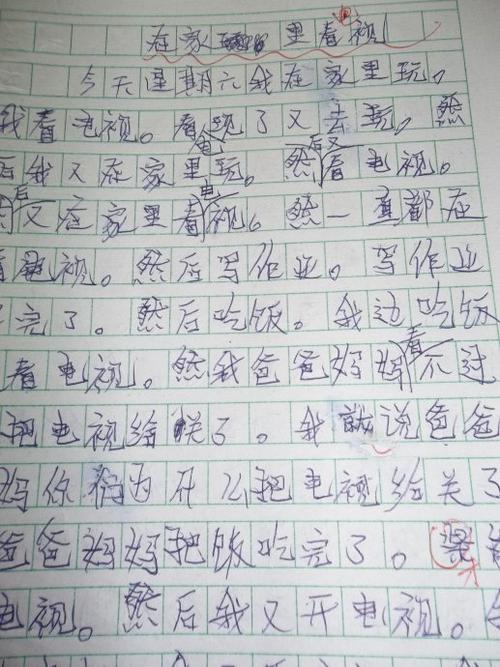 在家里看视
今天星期六我在家里玩。
我看电视。看现了又去玩。然
后我又在家里玩。然后又看电视。
后又在家里看电视。然一直都在
看电视。然后写作业。写作业
完了。然后吃饭。我边吃饭
看电视。然我爸爸妈妈看不过
把电视给关了。我就说爸爸
妈你们为什么把电视给关了
爸爸妈妈把饭吃完了。
电视。然后我又开电视。